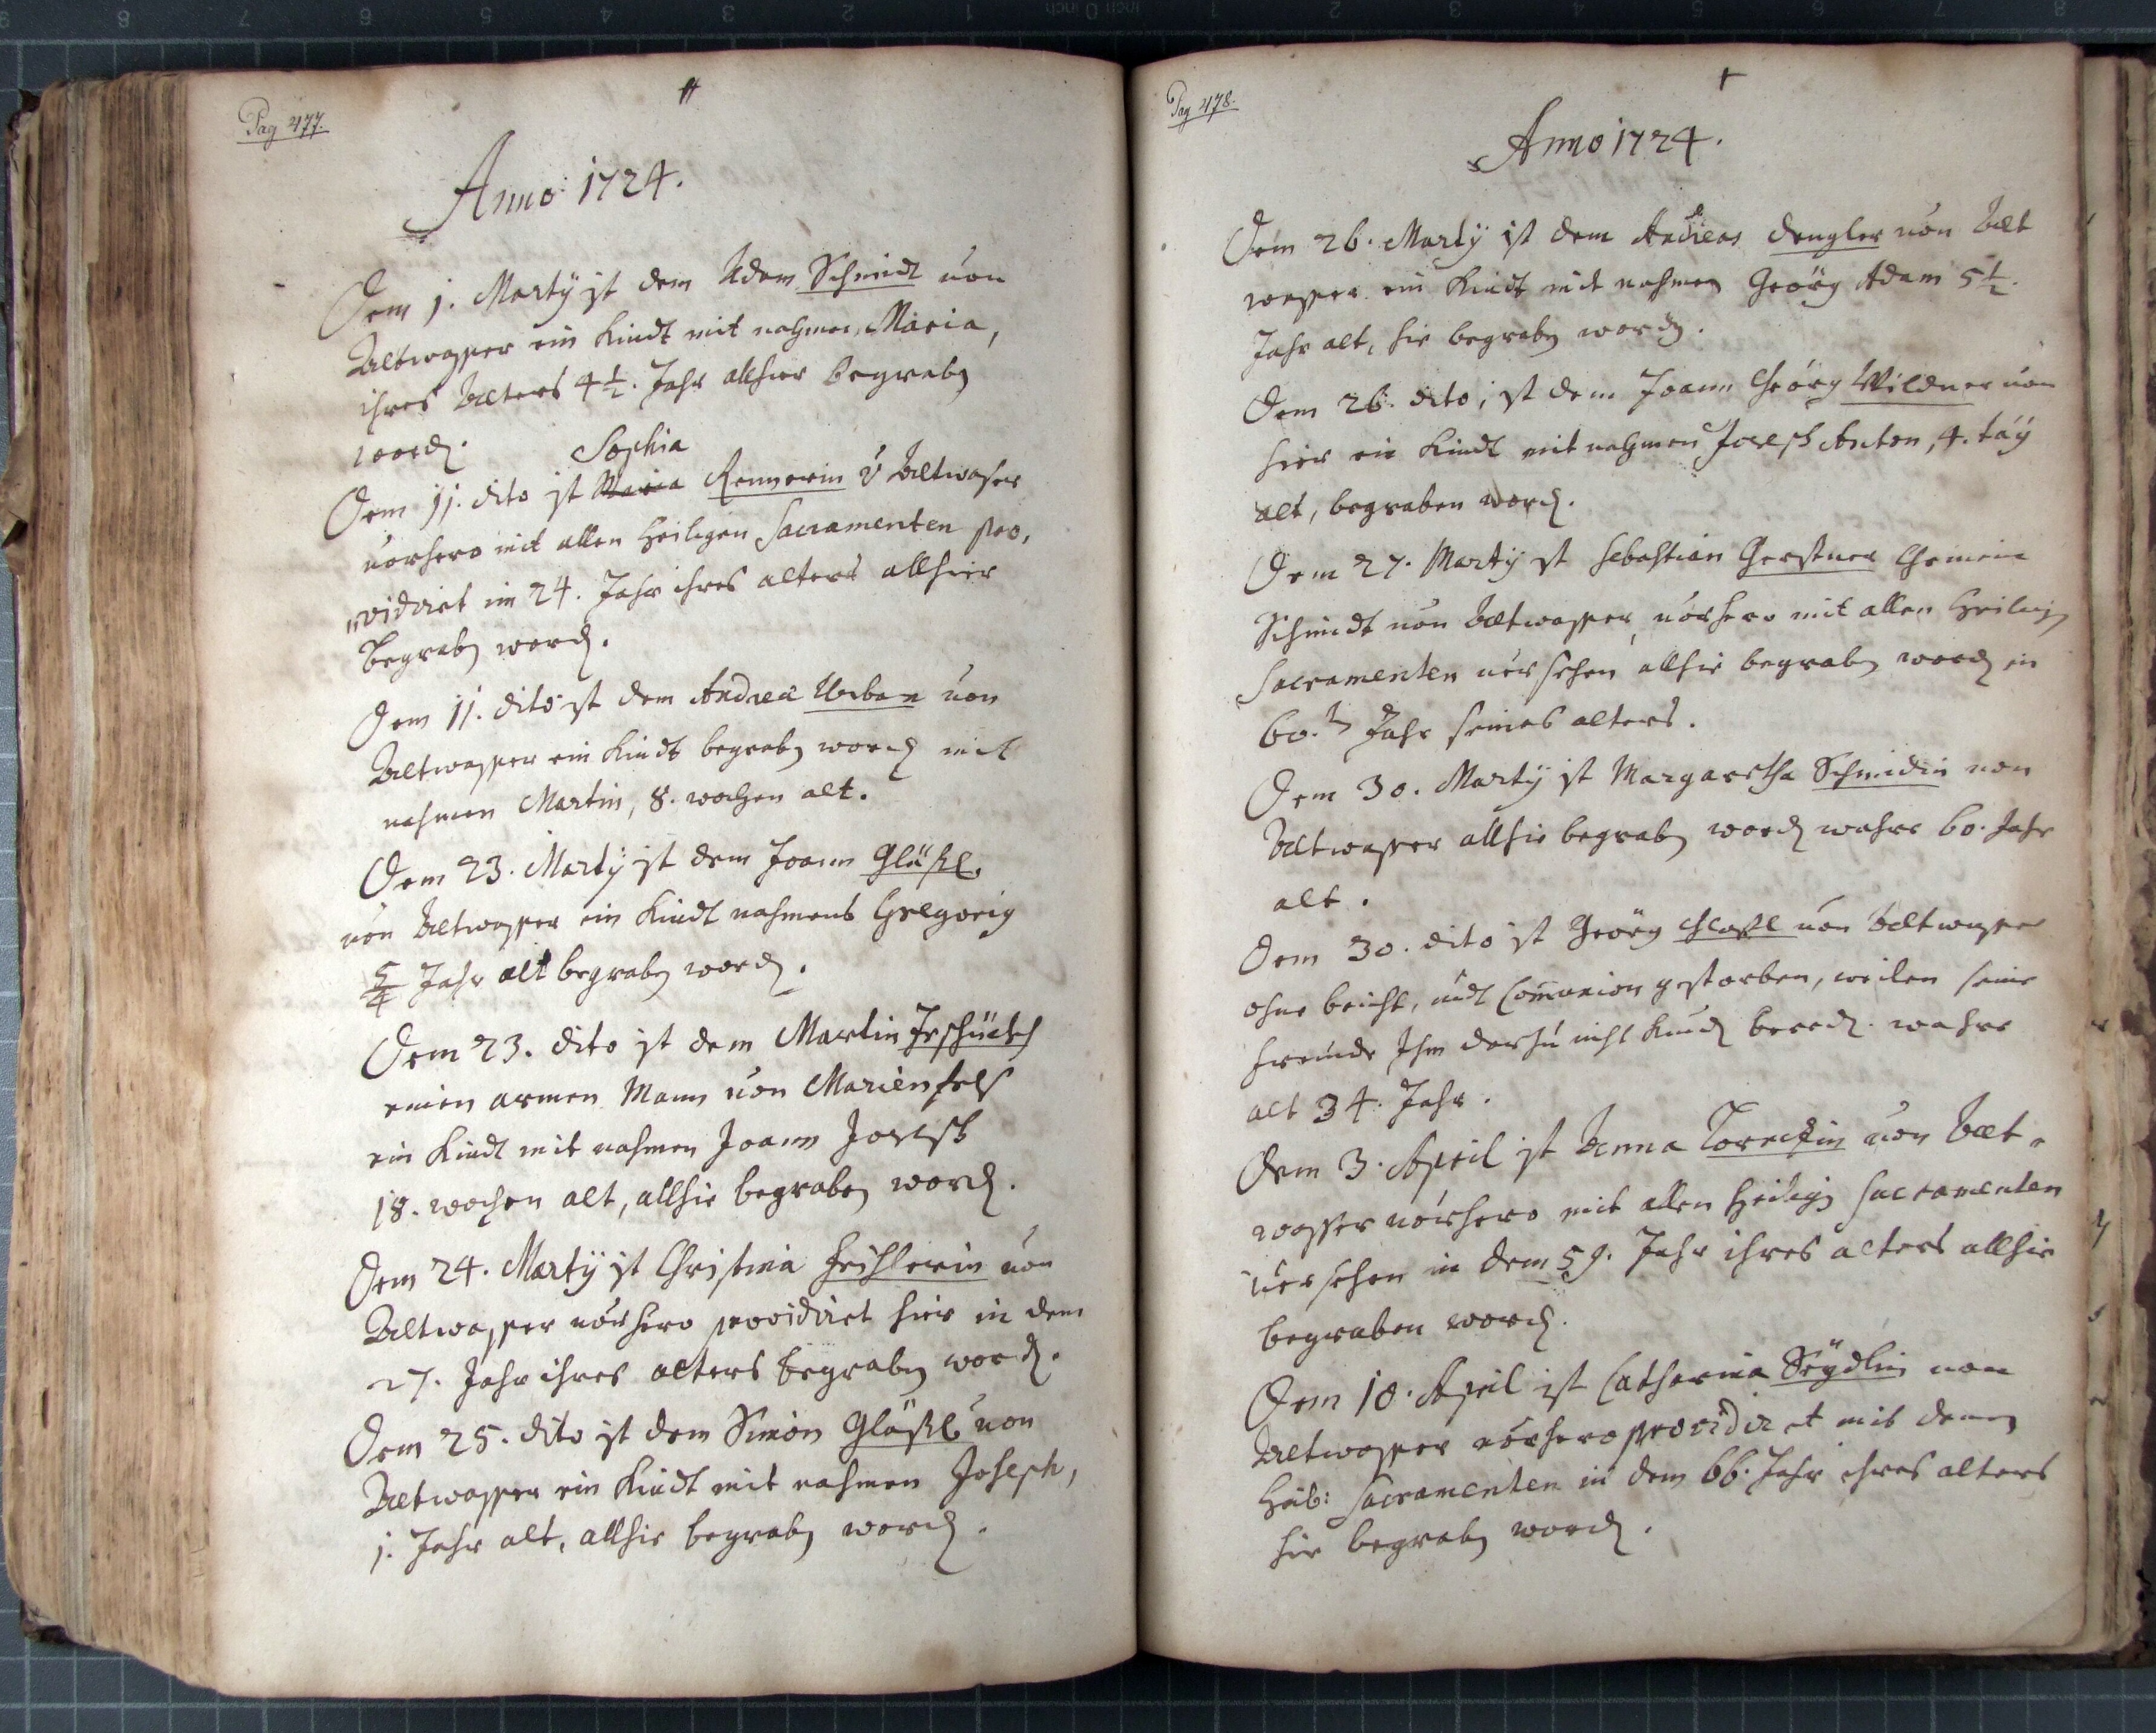 Pag 477.
Anno 1724.
Dem 1. Martÿ ist dem Adam Schmidt von
Altwasser ein Kindt mit nahmen, Maria,
ihres Alters 4 1/2. Jahr allhier begraben
worden.
Sophia
Dem 11. dito ist Maria Rennerin v Altwasser
vorhero mit allen Heiligen Sacramenten pro,
vidiret im 24. Jahr ihres alters allhier
begraben worden.
Dem 11. dito ist dem Andrea Urban von
Altwasser ein Kindt begraben worden mit
nahmen Martin, 8. wochen alt.
Dem 23. Martÿ ist dem Joann Gläßl
von Altwasser ein Kindt nahmens Gregorig
5/4 Jahr alt begraben worden.
Dem 23. dito ist dem Martin
einen armen Mann von Marienfels
ein Kindt mit nahmen Joann Joseph
18. wochen alt, allhie begraben worden.
Dem 24. Martÿ ist Christina von
Altwasser vorhero providiret hier in dem
27. Jahr ihres alters begraben worden.
Dem 25. dito ist dem Simon Gläßl von
Altwasser ein Kindt mit nahmen Joseph,
1. Jahr alt, allhie begraben worden.
Pag 478.
Anno 1724.
Dem 26. Martÿ ist dem Andreas Dengler von Alt
wasser ein Kindt mit nahmen Geörg Adam 5 1/2.
Jahr alt, hie begraben worden.
Dem 26. dito, ist dem Joann Geörg Wildner von
hier ein Kindt mit nahmen Joseph Anton, 4. täg
alt, begraben worden.
Dem 27. Martÿ ist Sebastian Gerstner Gemein
Schmidt von Altwasser, vorhero mit allen Heiligen
Sacramenten versehen allhie begraben worden in
60. Jahr seines alters.
Dem 30. Martÿ ist Margaretha Schmidin von
Altwasser allhie begraben worden wahre 60. Jahr
alt.
Dem 30. dito ist Geörg Glaßl von Altwasser
ohne beicht, undt Communion gestorben, weilen seine
freunde Ihm darzu nicht wahre
alt 34. Jahr.
Dem 3. April ist Anna von Alt-
wasser vorhero mit allen Heiligen Sacramenten
versehen in dem 59. Jahr ihres alters allhie
begraben worden.
Dem 18. April ist Catharina Seÿdlin von
Altwasser vorhero providiret mit denen
Heil: Sacramenten in dem 66. Jahr ihres alters
hie begraben worden.